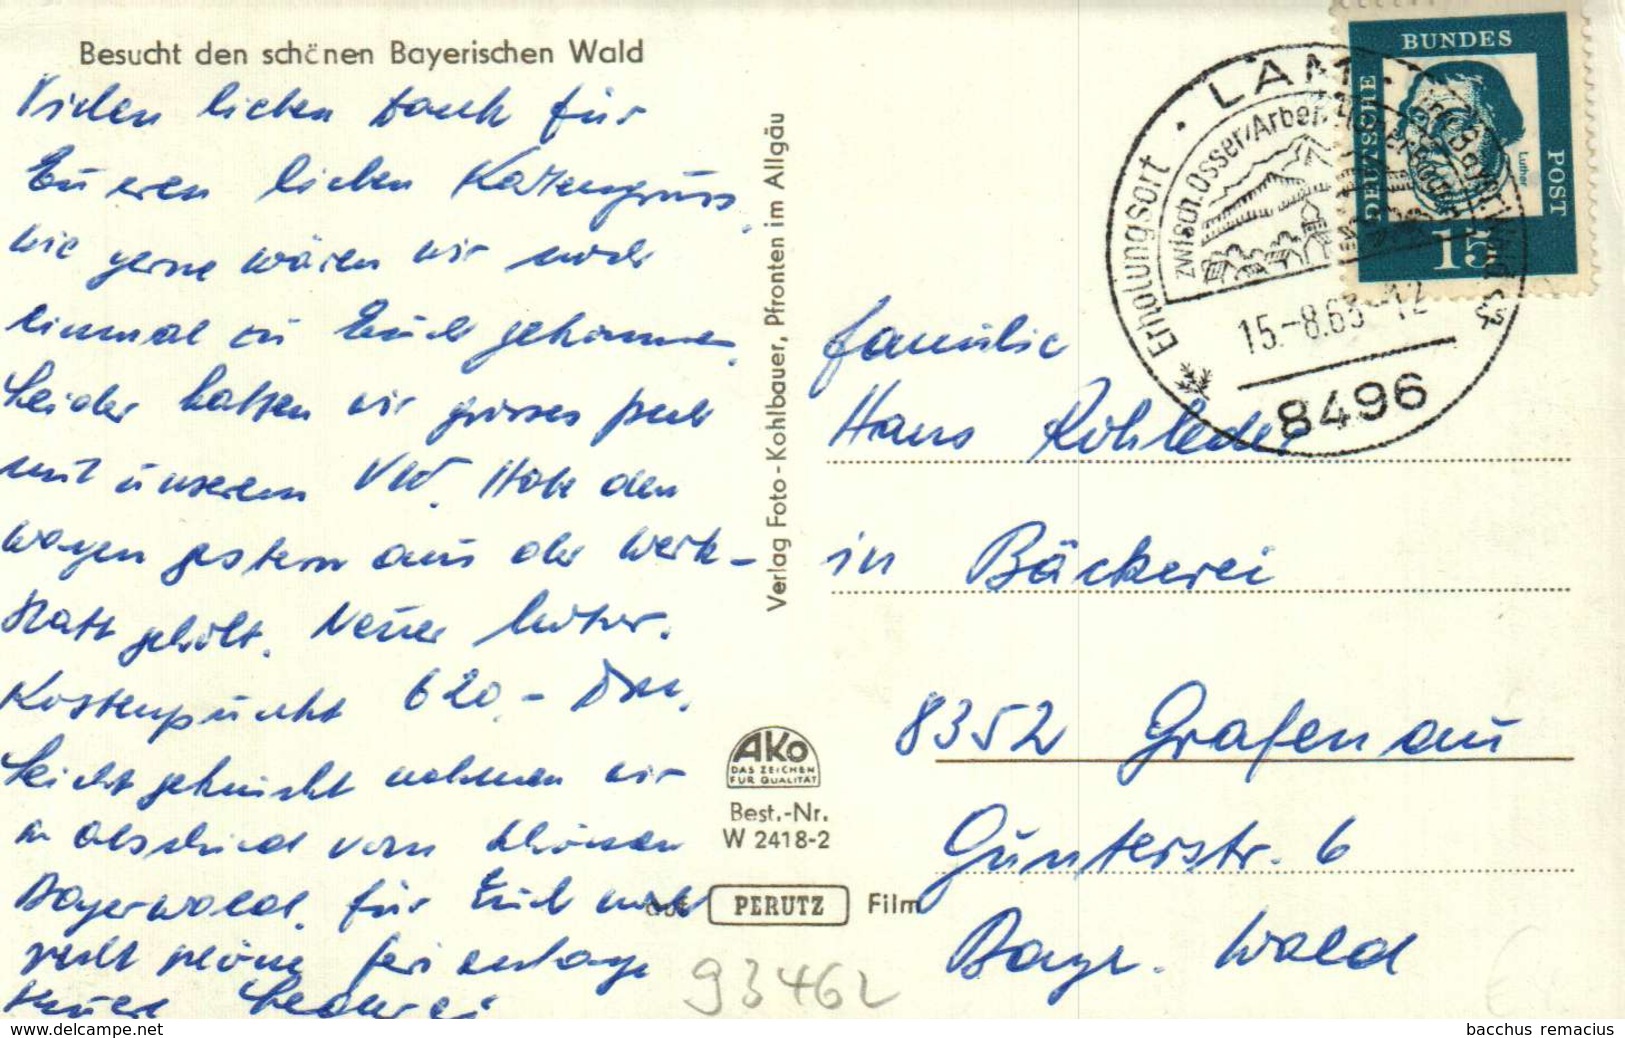 Besucht den schönen Bayerischen Wald
Vielen lieben Dank für
Eueren lieben Kartengruss,
wie gerne wären wir noch
einmal zu Euch gekommen,
Leider hatten wir grosses Pech
mit unserem VW. Habe den
Wagen gestern aus der Werk-
statt geholt. Neuer Motor.
Kostenpunkt 620,- DM.
Leicht geknickt nahmen wir
Abschied vom schönen
Bayerwald. für Euch noch
recht schöne Ferientage
Euere
Verlag Foto-Kohlbauer, Pfronten im Allgäu
AKO
DAS ZEICHEN
FÜR QUALITÄT
Best.-Nr.
W 2418-2
auf PERUTZ Film
93462
DEUTSCHE BUNDES POST
Luther
15
Erholungsort · LAM ·
zwisch. Osser/Arber
15.-8.63-12
8496
Familie
Hans Rohleder
in Bäckerei
8352 Grafenau
Günterstr. 6
Bayr. Wald
www.delcampe.net
bacchus remacius